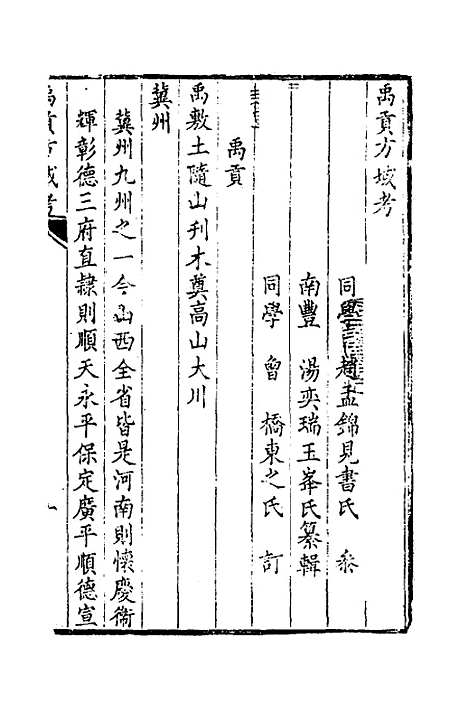 禹貢方域考
同學 趙孟錦見書氏 叅
南豐 湯奕瑞玉峯氏纂輯
同學 曾 橋東之氏 訂
禹貢
禹敷土隨山刋木奠高山大川
冀州
冀州九州之一今山西全省皆是河南則懷慶衛
輝彰德三府直隸則順天永平保定廣平順德宣
禹貢方域考 一